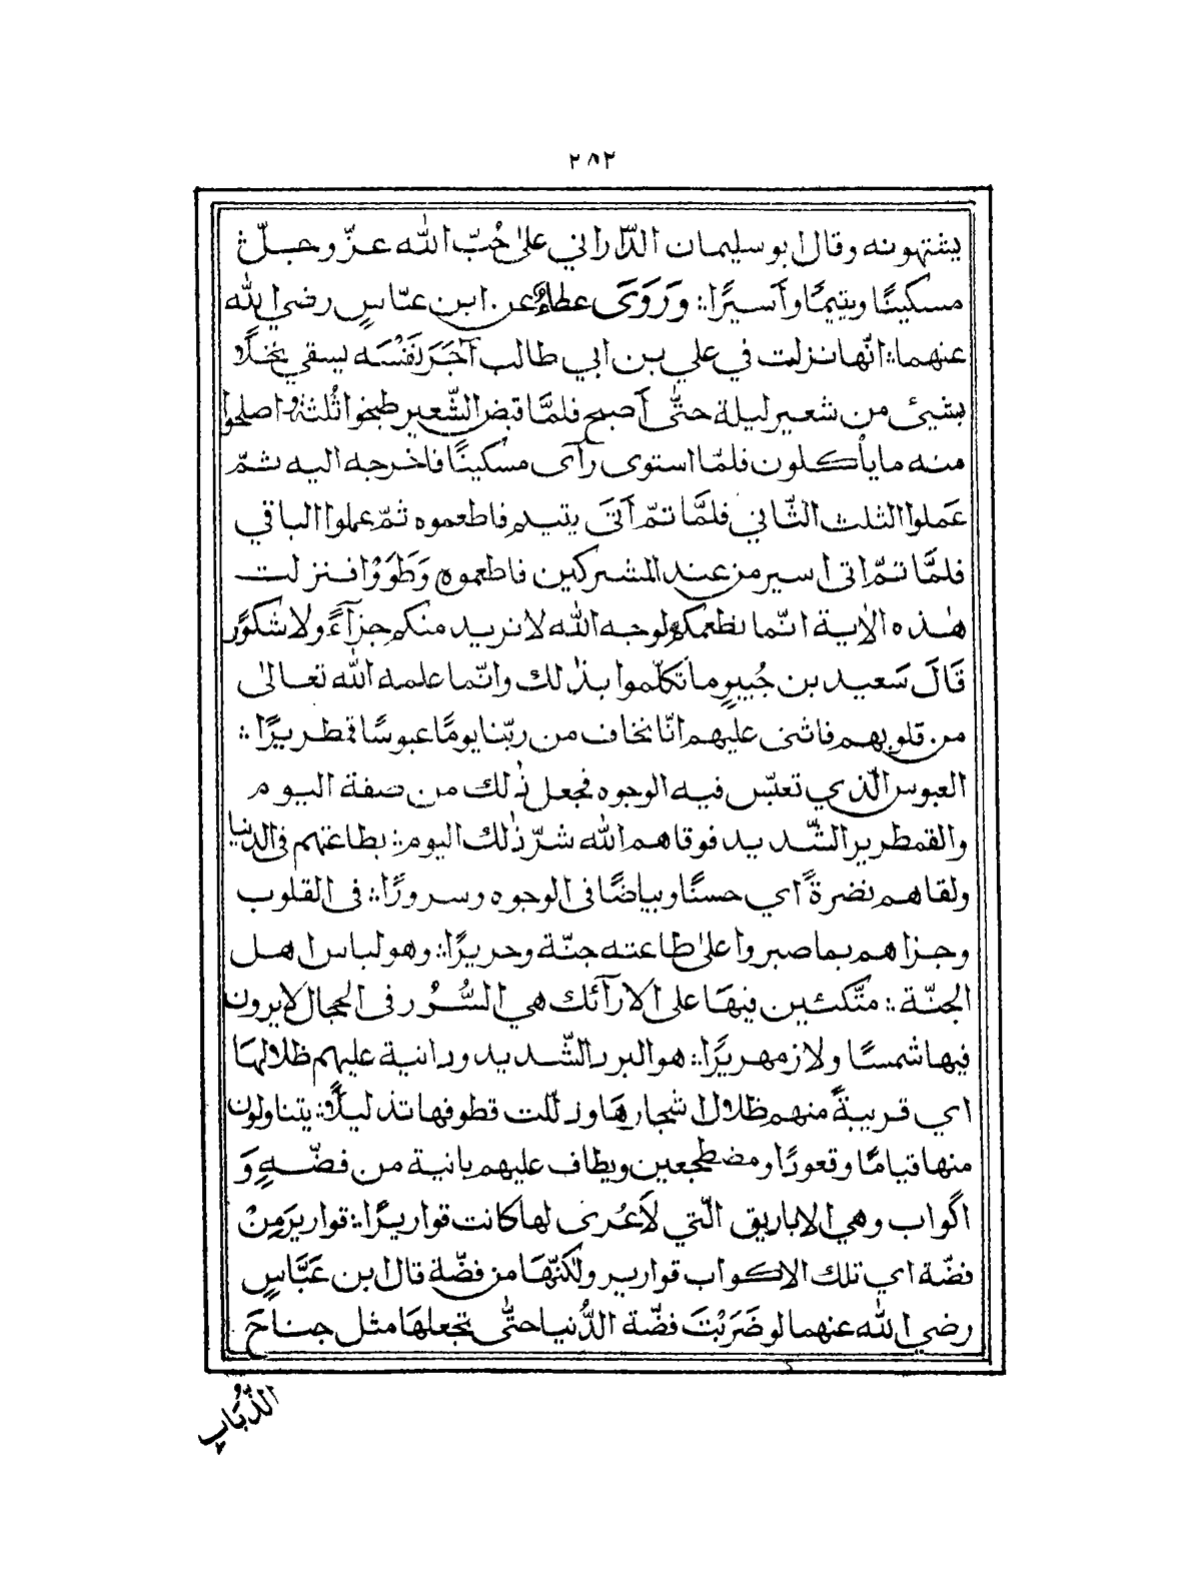 ٢٨٢
يشتهونه وقال ابو سليمان الدّاراني على حُبّ الله عزّ وجلّ
مسكينًا ويتيمًا وأسيرًا؞ وَرَوَى عطاءٌ عن ابن عبّاسٍ رضي الله
عنهما؞ انّها نزلت في علي بن ابي طالب آجَرَ نَفْسَه يسقي نخلًا
بشيئ من شعير ليلة حتّى أصبح فلمَّا قبض الشّعير طبخوا ثُلثهُ واصلحوا
منه ما يأكلون فلمّا استوى رآى مسكينًا فاخرجه اليه ثمّ
عَملوا الثلث الثّاني فلمَّا تمّ آتَى يتيم فاطعموه ثمّ عملوا الباقي
فلمَّا تمّ اتى اسير من عند المشركين فاطعموه وَطَوَوْا فنزلت
هٰذه الاٰية انّما نطعمكم لوجه الله لا نريد منكم جزآءً ولا شكورًا
قَالَ سَعيد بن جُبيرٍ ما تكلّموا بذٰلك وانّما علمه الله تعالىٰ
من قلوبهم فاثنى عليهم انّا نخاف من ربّنا يومًا عبوسًا قمطريرًا؞
العبوس الّذي تعبّس فيه الوجوه فجعل ذٰلك من صفة اليوم
والقمطرير الشّديد فوقاهم الله شرّ ذٰلك اليوم؞ بطاعتهم في الدنيا
ولقاهم نضرةً اي حسنًا وبياضًا في الوجوه وسرورًا؞ في القلوب
وجزاهم بما صبروا علىٰ طاعته جنّة وحريرًا؞ وهو لباس اهل
الجنّة؞ متّكئين فيهَا على الارآئك هي السُّرُر في الحجال لا يرون
فيها شمسًا ولا زمهريرًا؞ هو البرد الشّديد ودانية عليهم ظلالهَا
اي قريبةً منهم ظلال اشجارهَا وذلّلت قطوفها تذليلًا؞ يتناولون
منها قيامًا وقعودًا ومضطجعين ويطاف عليهم بانية من فضّةٍ وَ
اكواب وهي الاباريق الّتي لا عُرٰى لها كانت قواريرًا؞ قواريرَ مِنْ
فضّة اي تلك الاكواب قوارير ولٰكنّهَا من فضّة قال ابن عَبَّاسٍ
رضي الله عنهما لو ضَرَبْتَ فضّة الدُّنيا حتّى تجعلهَا مثل جناحَ
الذُّبَابِ